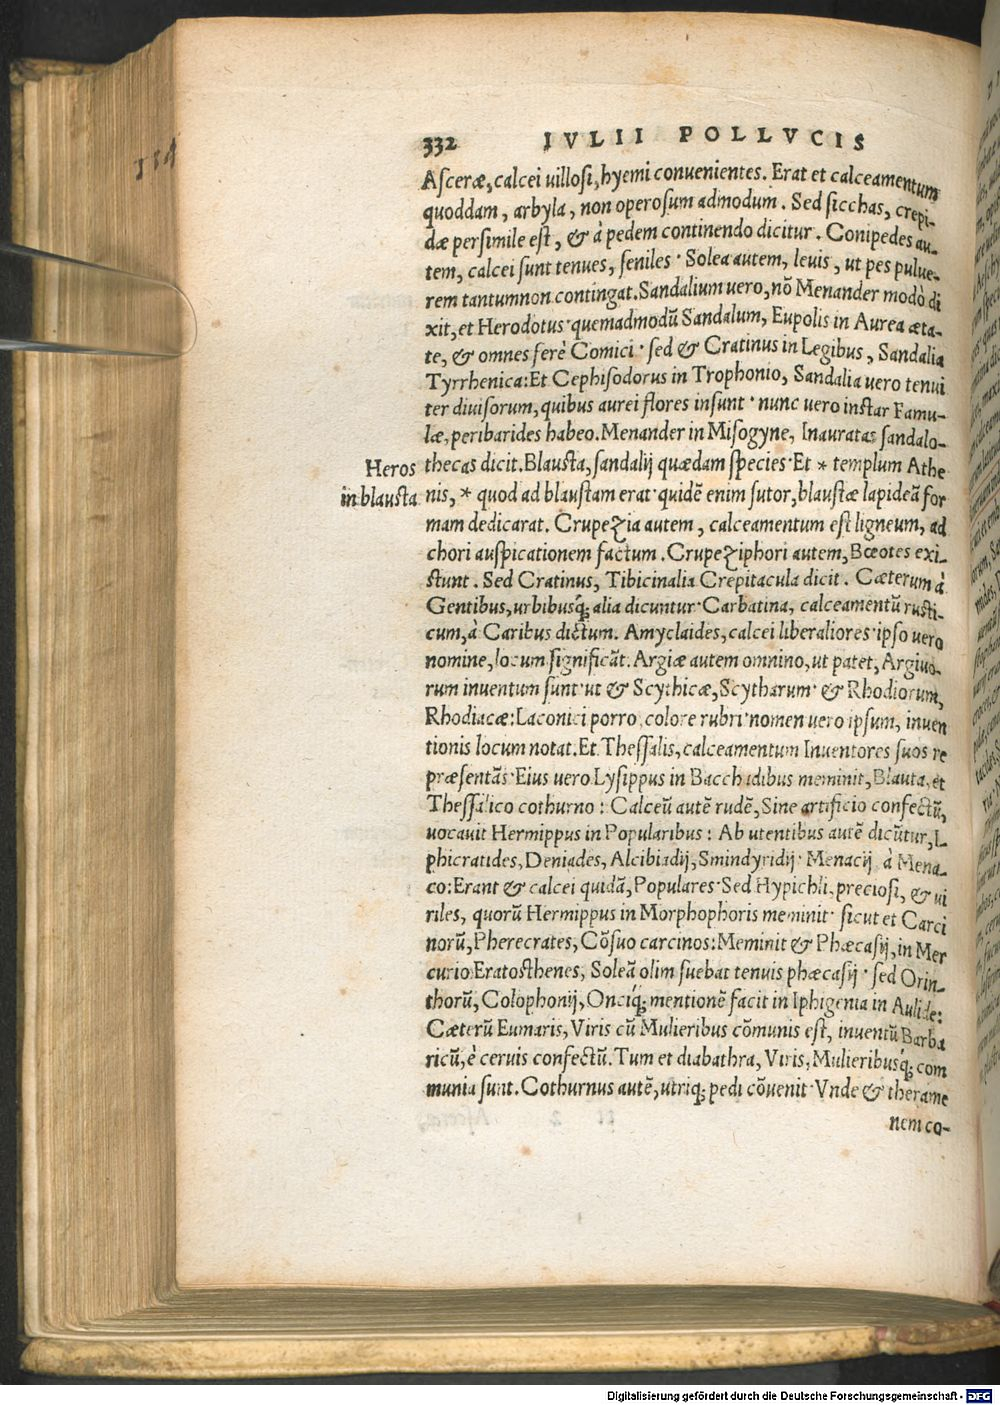 114
332 IVLII POLLVCIS
Asceræ, calcei uillosi, hyemi conuenientes. Erat et calceamentum
quoddam, arbyla, non operosum admodum. Sed sicchas, crepi-
dæ persimile est, & à pedem continendo dicitur. Conipedes au-
tem, calcei sunt tenues, seniles· Solea autem, leuis, ut pes pulue-
rem tantumnon contingat. Sandalium uero, nõ Menander modò di
xit, et Herodotus· quemadmodũ Sandalum, Eupolis in Aurea æta-
te, & omnes ferè Comici· sed & Cratinus in Legibus, Sandalia
Tyrrhenica: Et Cephisodorus in Trophonio, Sandalia uero tenui
ter diuisorum, quibus aurei flores insunt· nunc uero instar Famu-
læ, peribarides habeo. Menander in Misogyne, Inauratas sandalo-
Heros
thecas dicit. Blausta, sandalij quædam species· Et * templum Athe
in blausta
nis, * quod ad blaustam erat· quidẽ enim sutor, blaustæ lapideã for
mam dedicarat. Crupezia autem, calceamentum est ligneum, ad
chori auspicationem factum. Crupeziphori autem, Bœotes exi-
stunt. Sed Cratinus, Tibicinalia Crepitacula dicit. Cæterum à
Gentibus, urbibusq́; alia dicuntur· Carbatina, calceamentũ rusti-
cum, à Caribus dictum. Amyclaides, calcei liberaliores· ipso uero
nomine, locum significãt. Argiæ autem omnino, ut patet, Argiuo-
rum inuentum sunt· ut & Scythicæ, Scytharum· & Rhodiorum,
Rhodiacæ: Laconici porro, colore rubri· nomen uero ipsum, inuen
tionis locum notat. Et Thessalis, calceamentum Inuentores suos re
præsentãs· Eius uero Lysippus in Bacchidibus meminit, Blauta, et
Thessalico cothurno: Calceũ autẽ rudẽ, Sine artificio confectũ,
uocauit Hermippus in Popularibus: Ab utentibus autẽ dicũtur, I-
phicratides, Deniades, Alcibiadij, Smindyridij· Menacij à Mena-
co: Erant & calcei quidã, Populares· Sed Hypichli, preciosi, & ui
riles, quorũ Hermippus in Morphophoris meminit· sicut et Carci
norũ, Pherecrates, Cõsuo carcinos: Meminit & Phæcasij, in Mer
curio Eratosthenes, Soleã olim suebat tenuis phæcasij· sed Orin-
thorũ, Colophonij, Onciq́; mentionẽ facit in Iphigenia in Aulide:
Cæterũ Eumaris, Viris cũ Mulieribus cõmunis est, inuentũ Barba
ricũ, è ceruis confectũ. Tum et diabathra, Viris, Mulieribusq́; com
munia sunt. Cothurnus autẽ, utriq; pedi cõuenit· Vnde & therame
nem co-
Digitalisierung gefördert durch die Deutsche Forschungsgemeinschaft - DFG